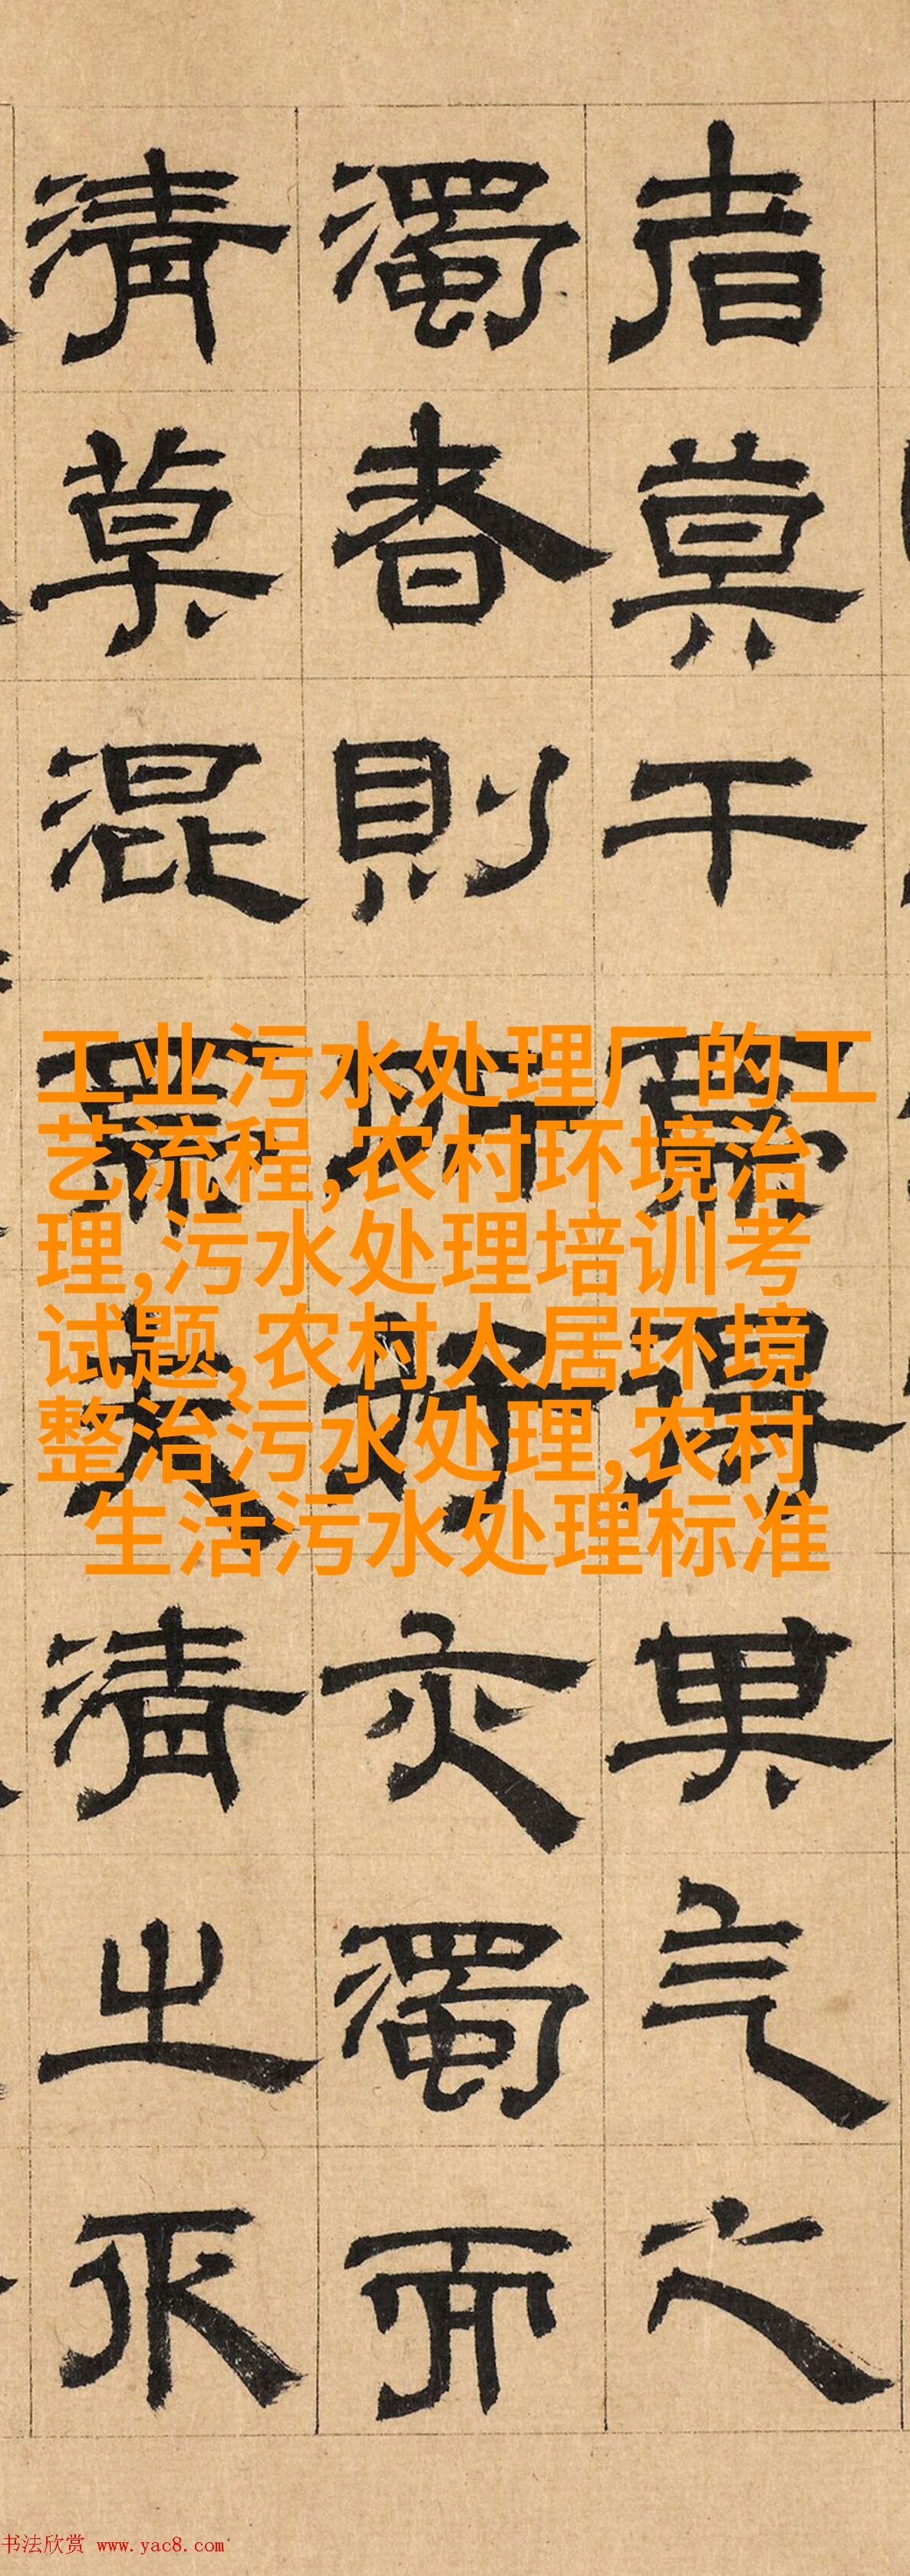 者莫干焉得其气之
濁者則所好亦濁而
清莫混焉夫清之
工业污水处理厂的工
艺流程,农村环境治
理,污水处理培训考
试题,农村人居环境
整治污水处理,农村
生活污水处理标准
书法欣赏 www.yac8.com